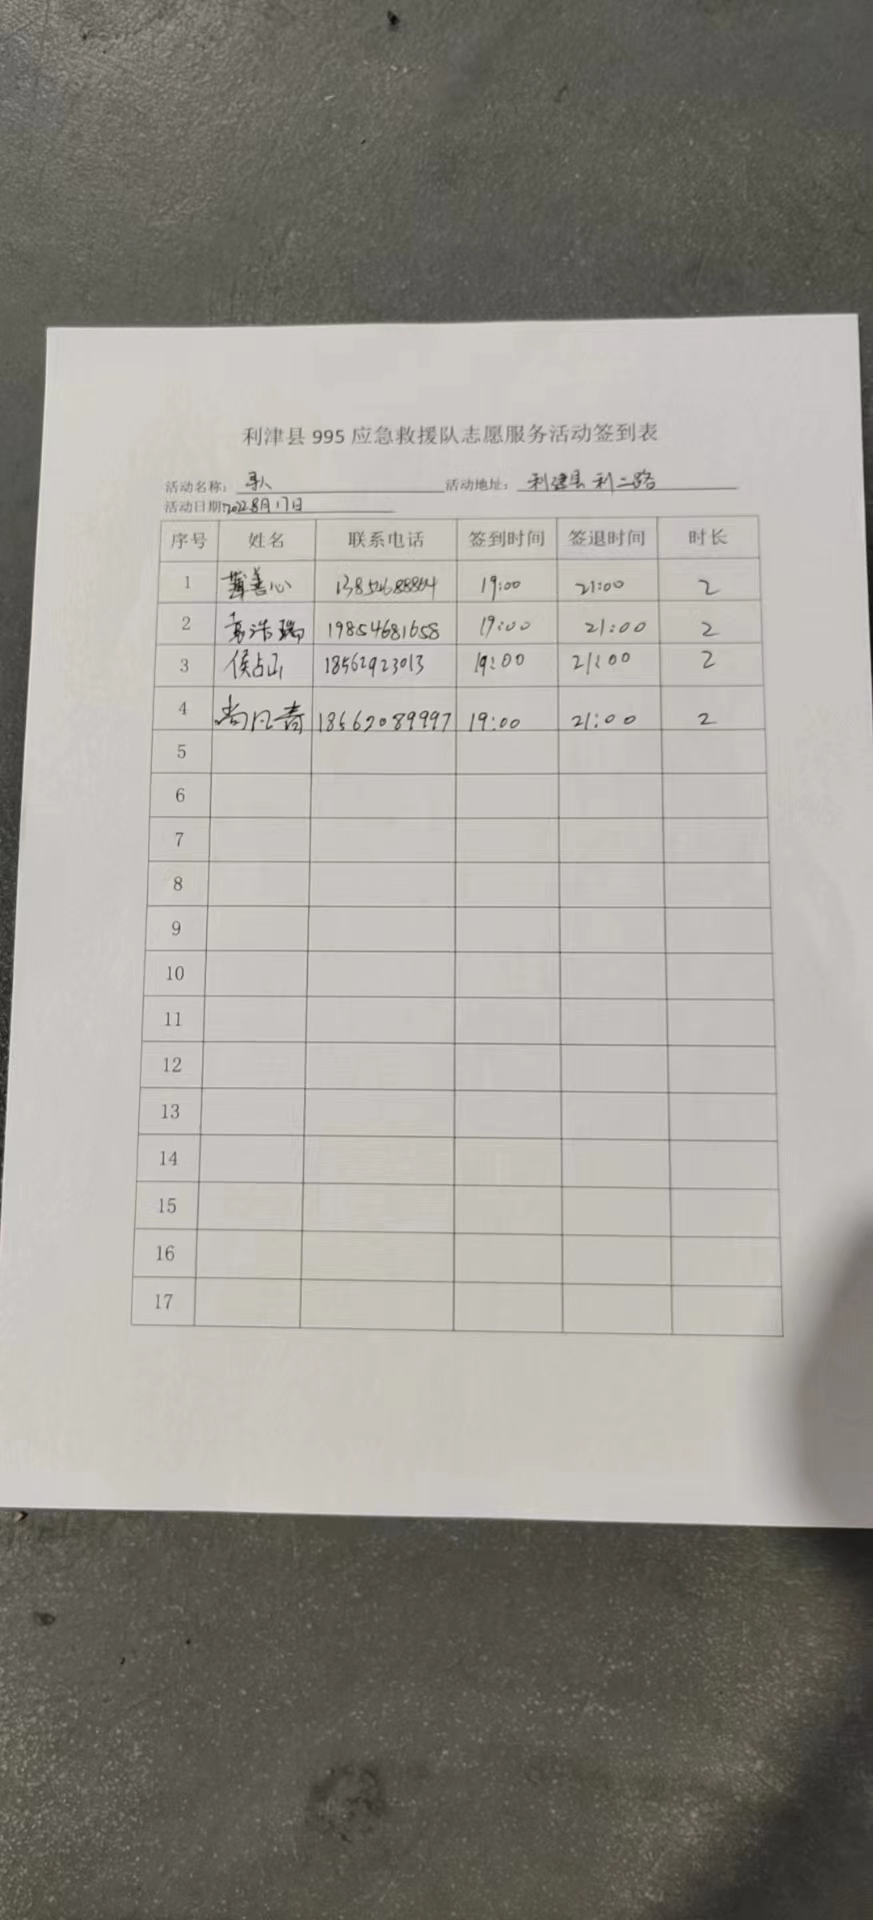 利津县 995 应急救援队志愿服务活动签到表
活动名称: 寻人 活动地址: 利津县 利二路
活动日期: 2022 8月17日
序号 姓名 联系电话 签到时间 签退时间 时长
1 善心 19:00 21:00 2
2 浩瑞 19854681658 19:00 21:00 2
3 侯占山 18562923013 19:00 21:00 2
4 尚凡青 18562089997 19:00 21:00 2
5
6
7
8
9
10
11
12
13
14
15
16
17